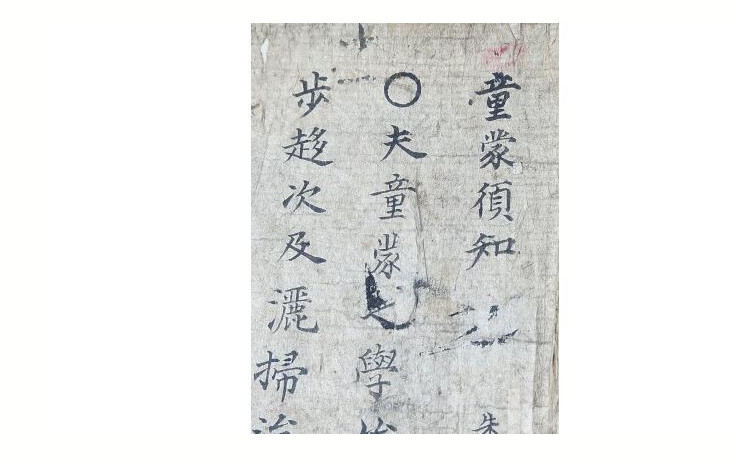 童蒙須知
○夫童蒙之學
步趍次及灑掃